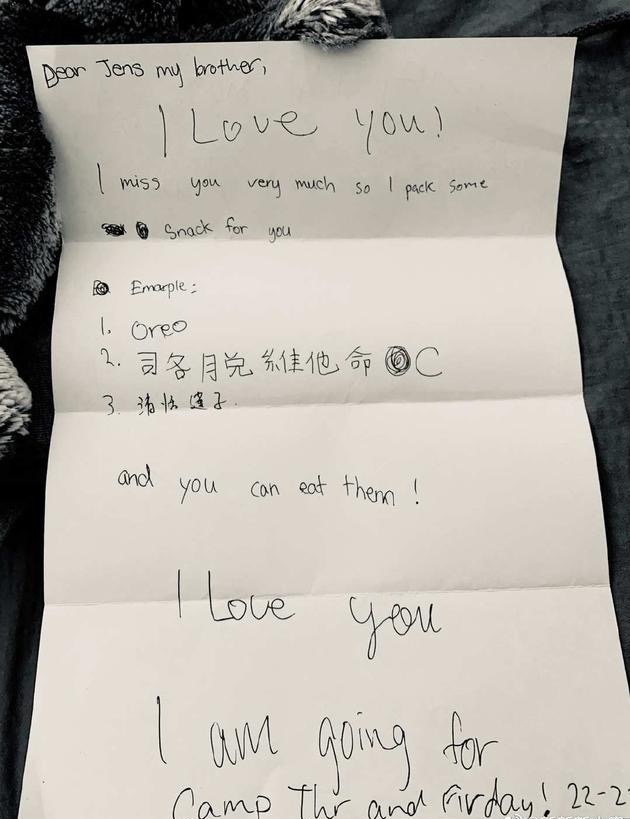 Dear Jens my brother,
I Love you!
I miss you very much so I pack some
Snack for you
Emarple:
1. Oreo
2. 司各月兑 維他命 C
3.
and you can eat them!
I Love you
I am going for
Camp Thr and Firday! 22-2